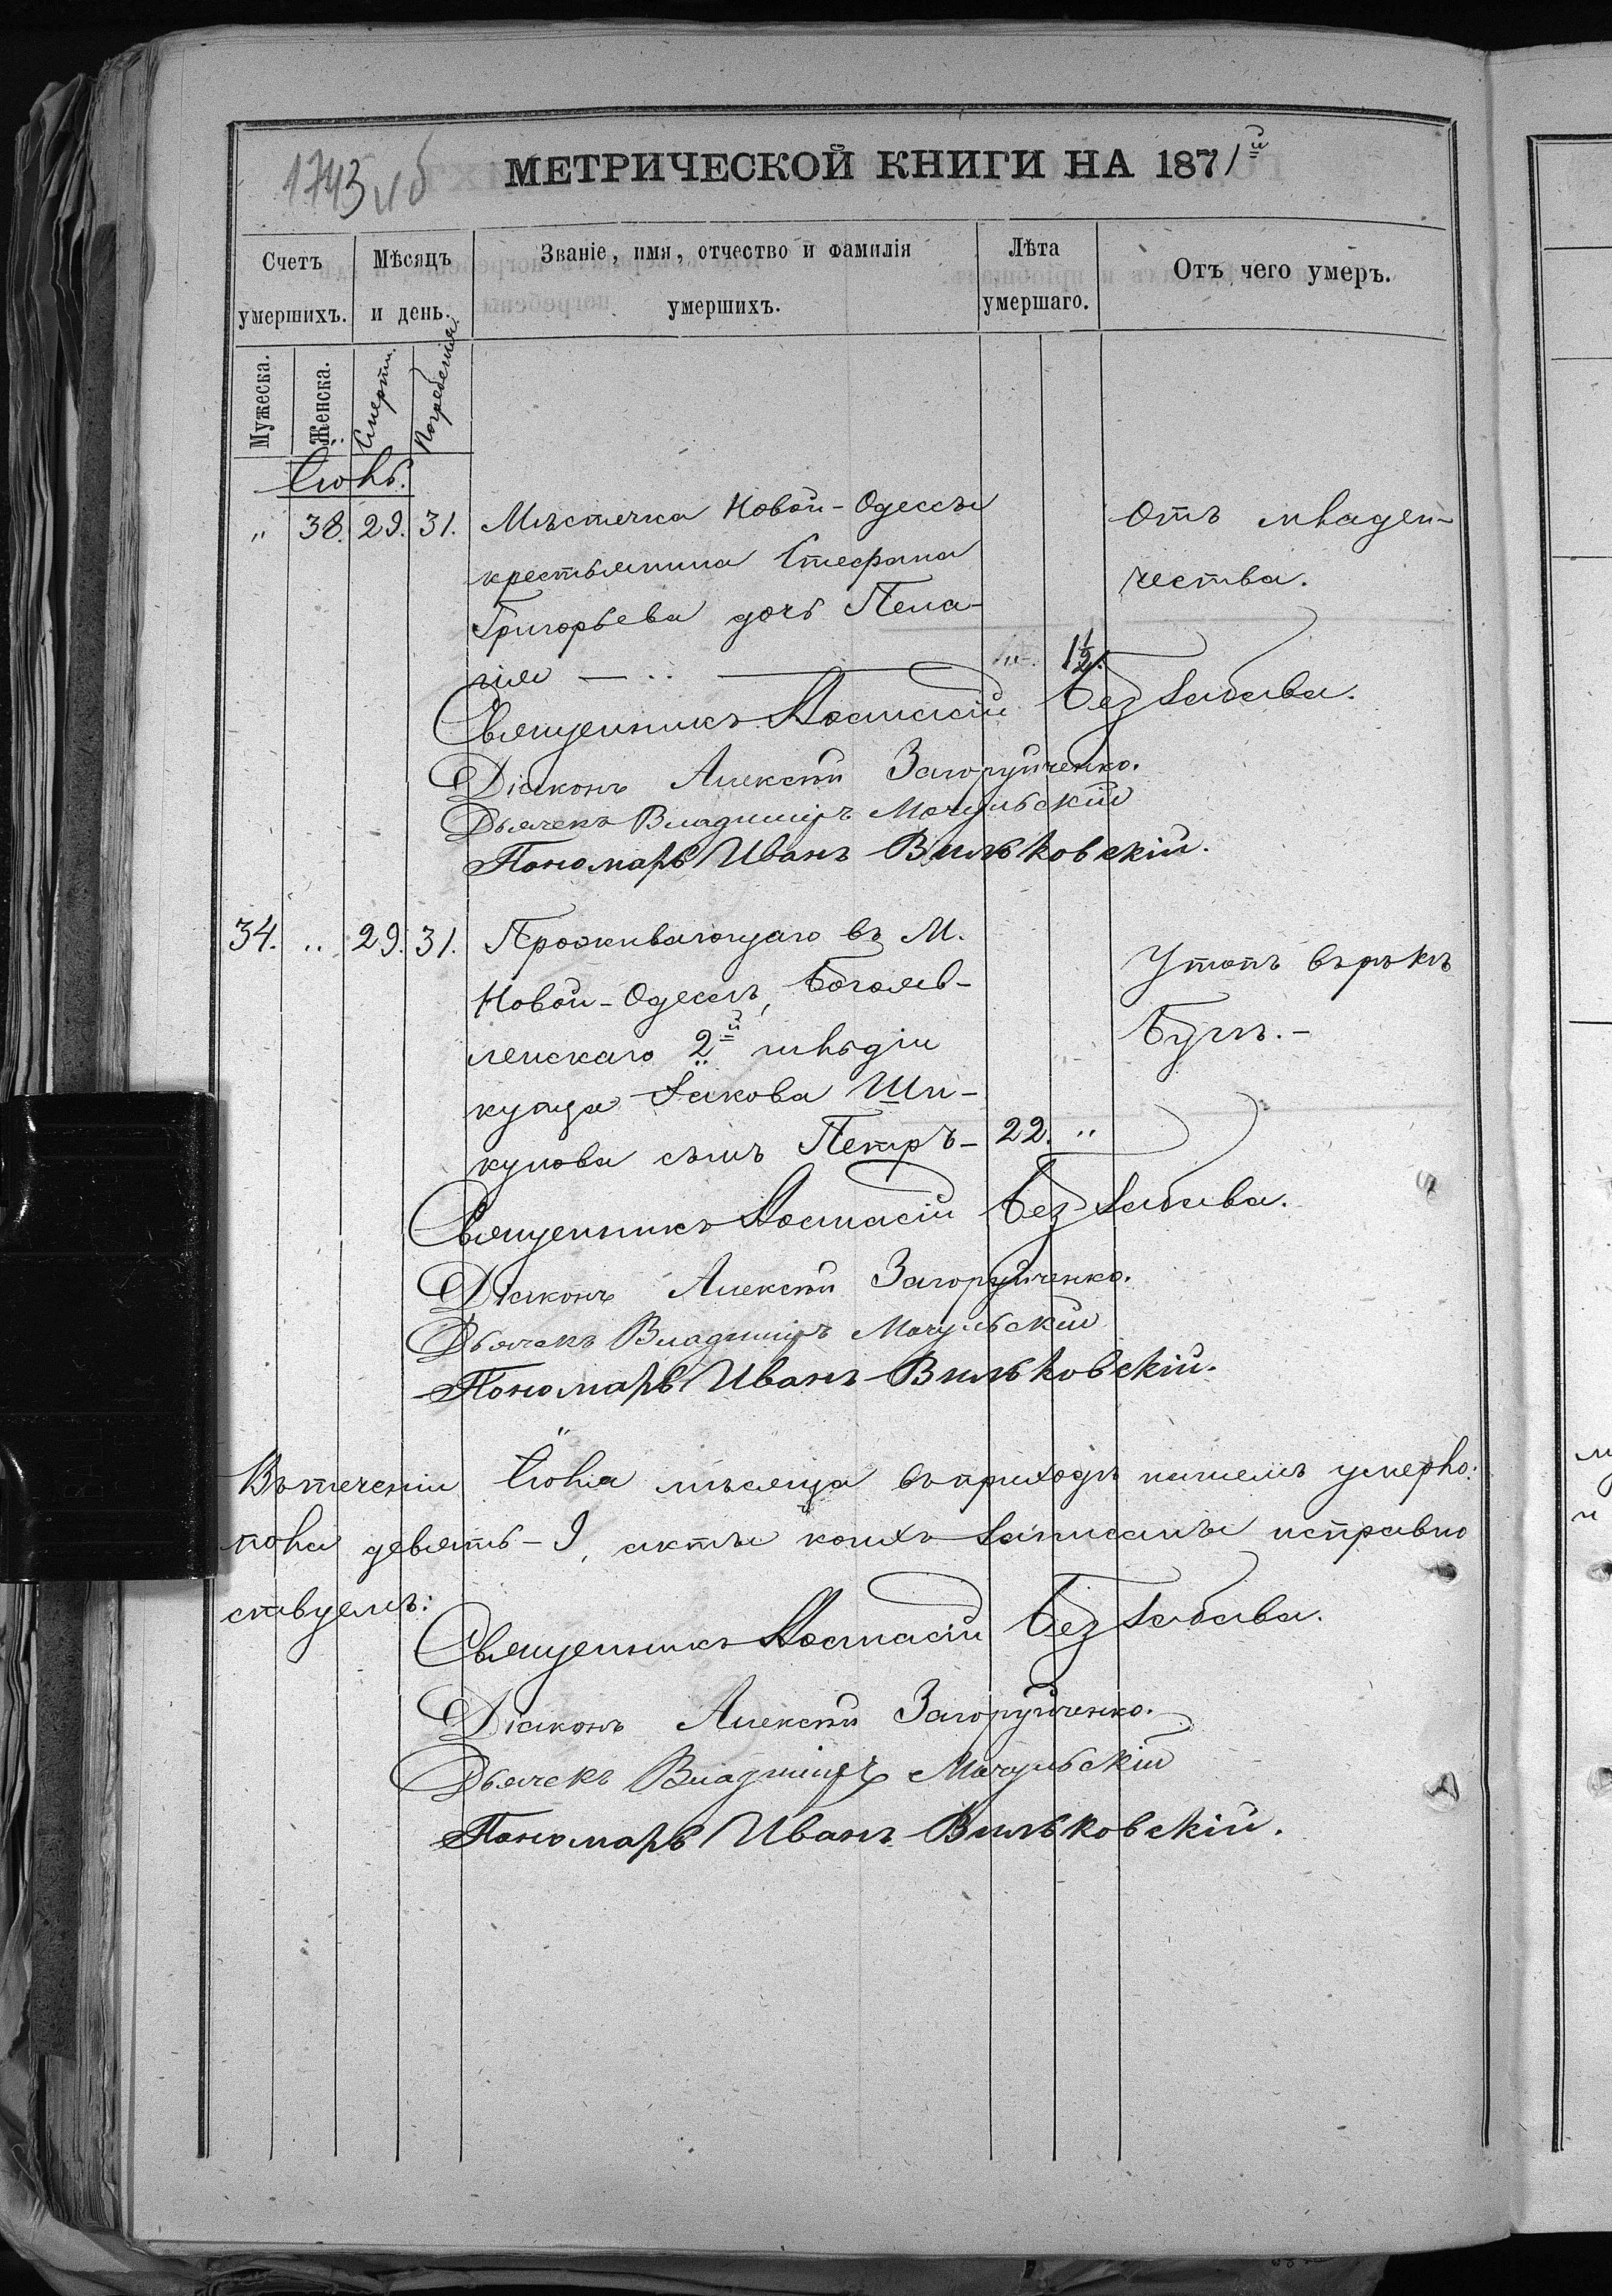 1743 иб
МЕТРИЧЕСКОЙ КНИГИ НА 1871й
Счетъ умершихъ.
Мѣсяцъ и день.
Званіе, имя, отчество и фамилія умершихъ.
Лѣта умершаго.
Отъ чего умеръ.
Мужеска.
Женска.
Смерти.
Погребенія.
Іюль.
" 38. 29. 31. Мѣстечка Новой-Одессы
крестьянина Стефана
Григорьева дочь Пела-
гія — .. — 1½.
Отъ младен-
чества.
Священникъ Аѳанасій Беззабава.
Діаконъ Алексѣй Загоруйченко.
Дьячекъ Владиміръ Мочульскій
Пономарь Иванъ Вильковскій.
34. .. 29. 31. Проживающаго въ М.
Новой-Одессѣ, Богояв-
ленскаго 2й гильдіи
купца Іакова Ши-
кунова сынъ Петръ- 22. "
Утопъ въ рѣкѣ
Бугѣ.-
Священникъ Аѳанасій Беззабава.
Діаконъ Алексѣй Загоруйченко.
Дьячекъ Владиміръ Мочульскій
Пономарь Иванъ Вильковскій.
Въ теченіи Іюля мѣсяца въ приходѣ нашемъ умерло:
пола девять-9, акты коихъ записаны исправно
ствуемъ:
Священникъ Аѳанасій Беззабава.
Діаконъ Алексѣй Загоруйченко.
Дьячекъ Владиміръ Мочульскій
Пономарь Иванъ Вильковскій.